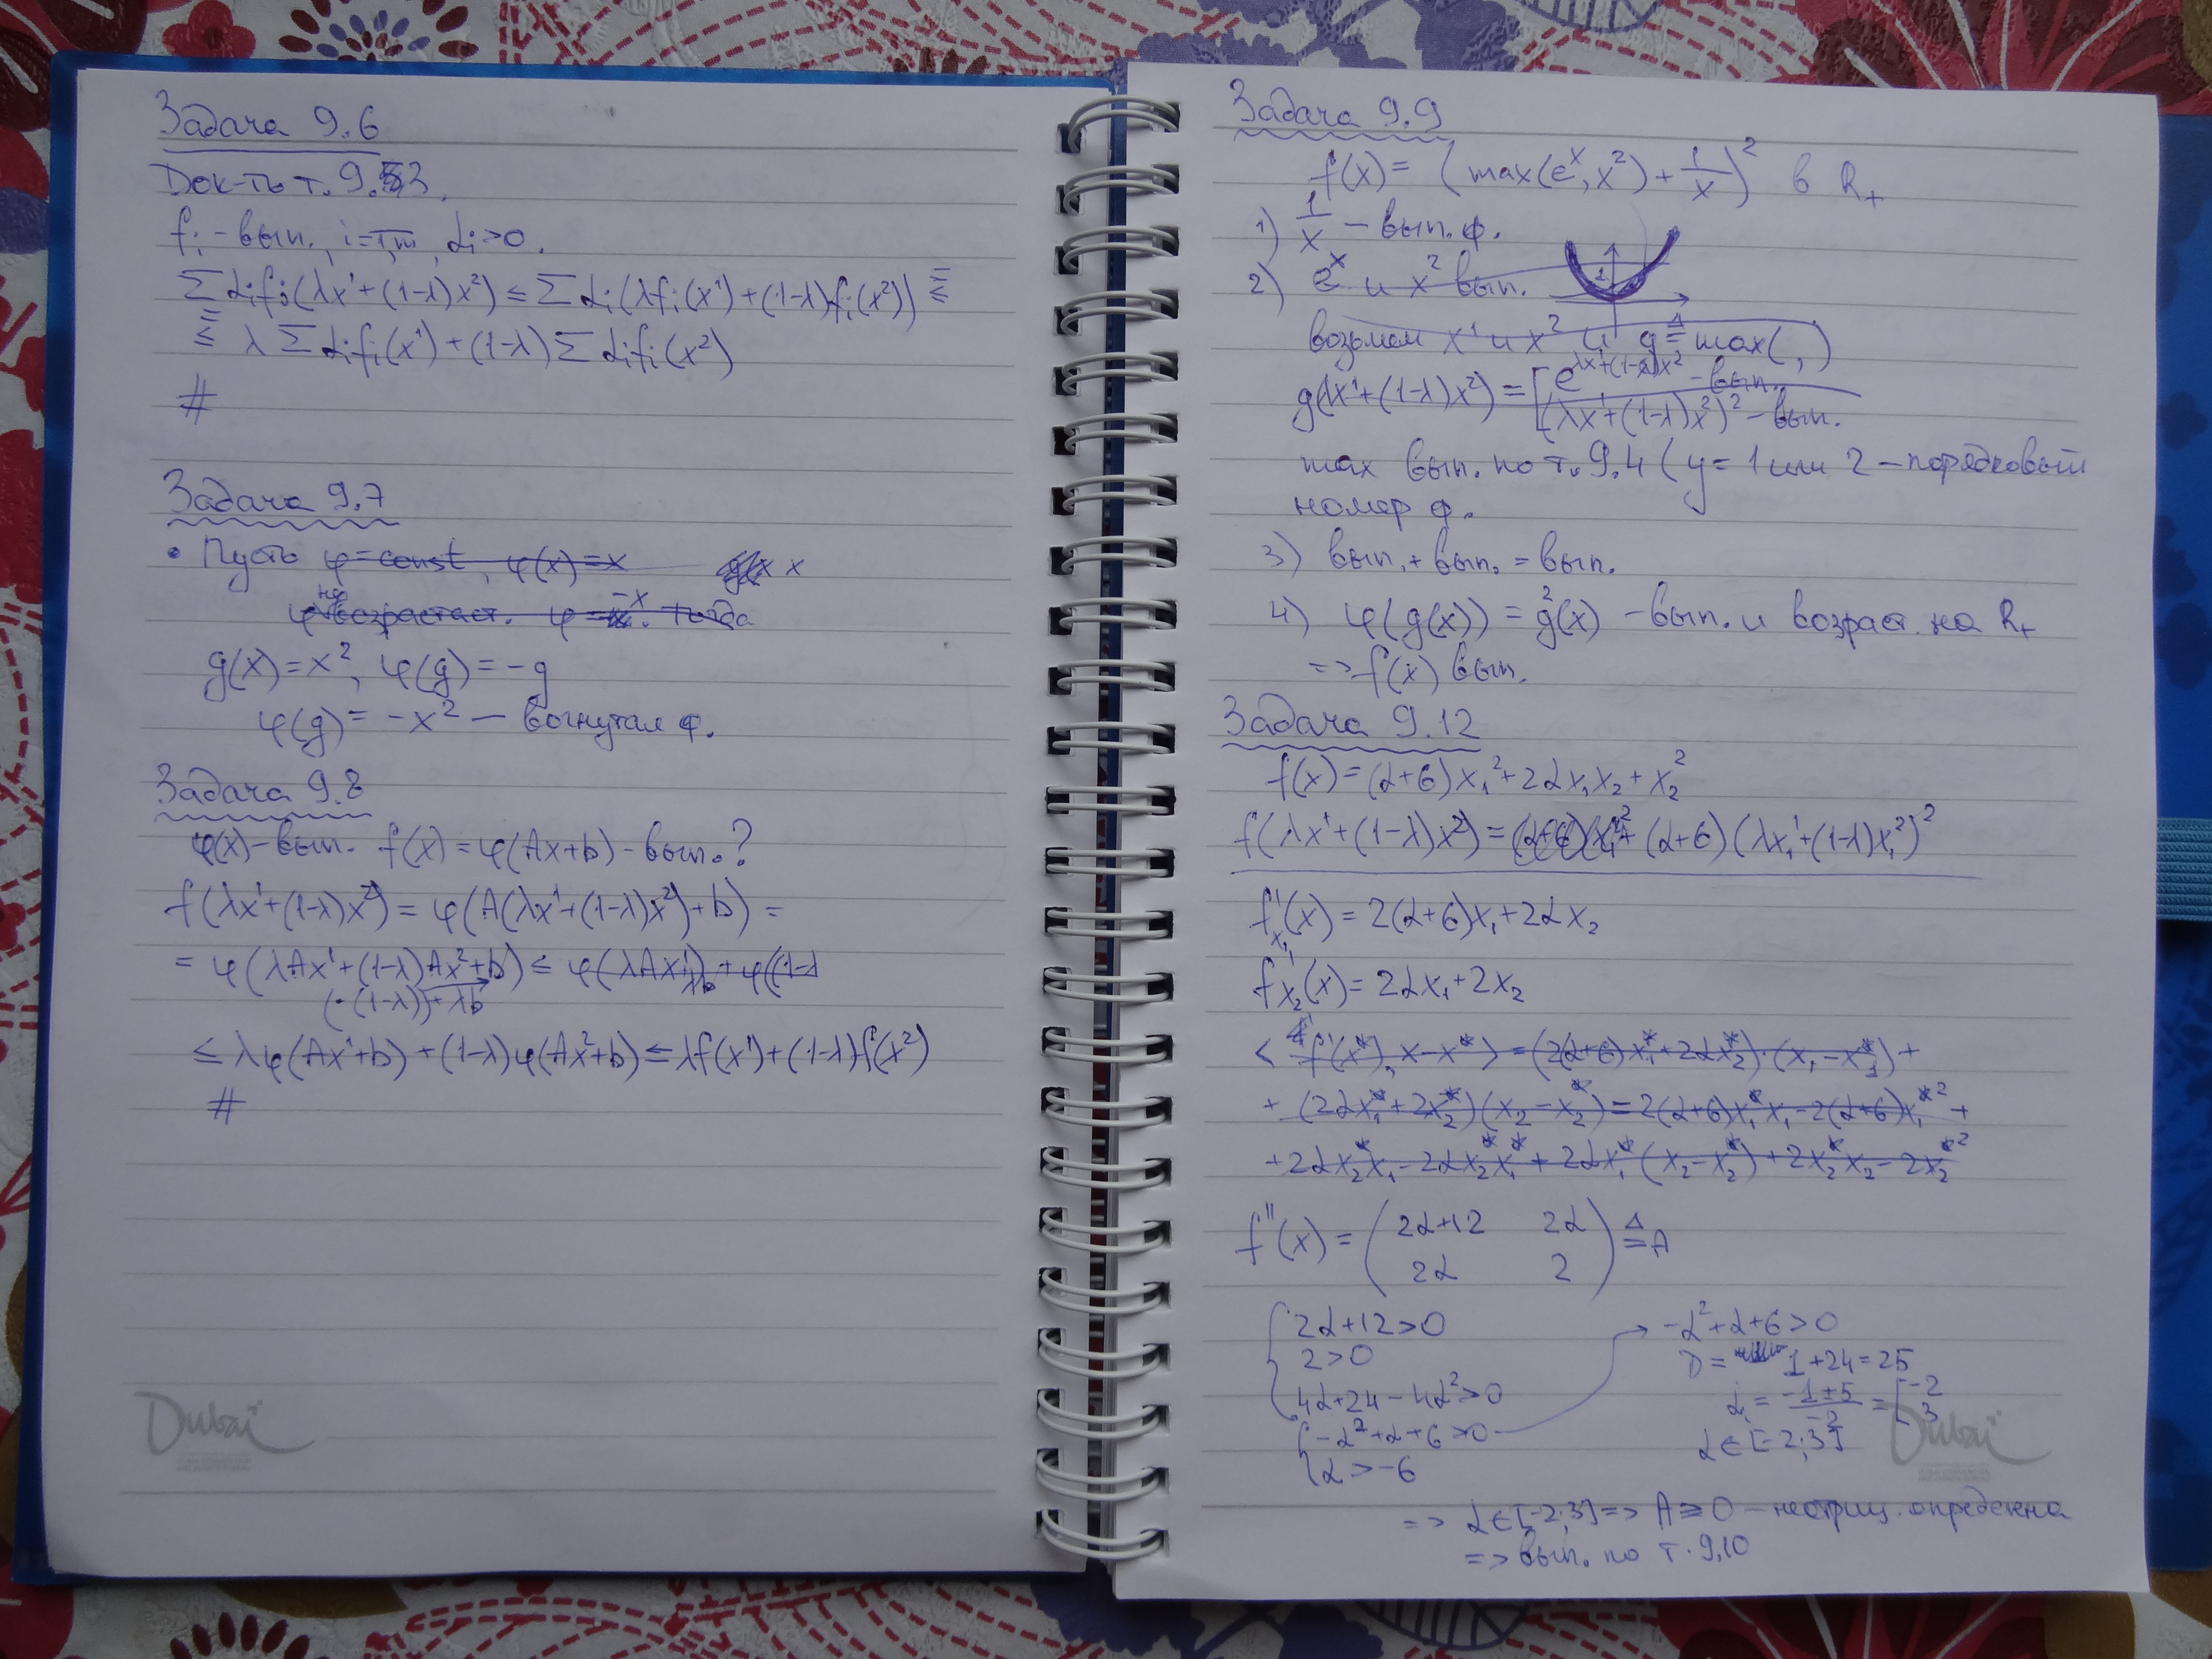 Задача 9.6
Док-ть т. 9.3.
fᵢ - вып., i=1,m, αᵢ>0.
∑αᵢfᵢ(λx¹+(1-λ)x²) ≤ ∑αᵢ(λfᵢ(x¹)+(1-λ)fᵢ(x²)) ≤
≤ λ∑αᵢfᵢ(x¹)+(1-λ)∑αᵢfᵢ(x²)
#
Задача 9.7
• Пусть φ=const, φ(x)=x
φ не возрастает. φ=-x. Тогда
g(x)=x², φ(g)=-g
φ(g)=-x² — вогнутая ф.
Задача 9.8
φ(x)-вып. f(x)=φ(Ax+b)-вып.?
f(λx¹+(1-λ)x²) = φ(A(λx¹+(1-λ)x²)+b) =
= φ(λAx¹+(1-λ)Ax²+b) ≤ φ(λAx¹) + φ((1-λ
(·(1-λ))+λb
≤ λφ(Ax¹+b)+(1-λ)φ(Ax²+b) ≤ λf(x¹)+(1-λ)f(x²)
#
Задача 9.9
f(x)= (max(eˣ,x²)+1/x)² в R₊
1) 1/x – вып. ф.
2) eˣ и x² вып.
возьмем x¹ и x² и g ≜ max(,)
g(λx¹+(1-λ)x²) = [e^(λx¹+(1-λ)x²) - вып.
(λx¹+(1-λ)x²)² - вып.
max вып. по т. 9.4 (y=1 или 2 – порядковый
номер ф.
3) вып. + вып. = вып.
4) φ(g(x)) = g²(x) – вып. и возраст. на R₊
=> f(x) вып.
Задача 9.12
f(x)=(α+6)x₁²+2αx₁x₂+x₂²
f(λx¹+(1-λ)x²) = (α+6)(λx₁¹+(1-λ)x₁²)²
f'ₓ₁(x) = 2(α+6)x₁+2αx₂
f'ₓ₂(x) = 2αx₁+2x₂
< f'(x*), x-x* > = (2(α+6)x₁*+2αx₂*)·(x₁-x₁*)+
+ (2αx₁*+2x₂*)(x₂-x₂*) = 2(α+6)x₁*x₁-2(α+6)x₁*²+
+2αx₂*x₁-2αx₂*x₁*+2αx₁*(x₂-x₂*)+2x₂*x₂-2x₂*²
f''(x) = (2α+12 2α
2α 2) ≜ A
{2α+12>0
2>0
4α+24-4α²>0
{-α²+α+6>0
α>-6
-α²+α+6>0
D= 1+24=25
αᵢ = (-1±5)/-2 = [-2
3
α∈[-2;3]
=> α∈[-2;3] => A≥0 – неотриц. определена
=> вып. по т. 9.10
Dubai
Dubai